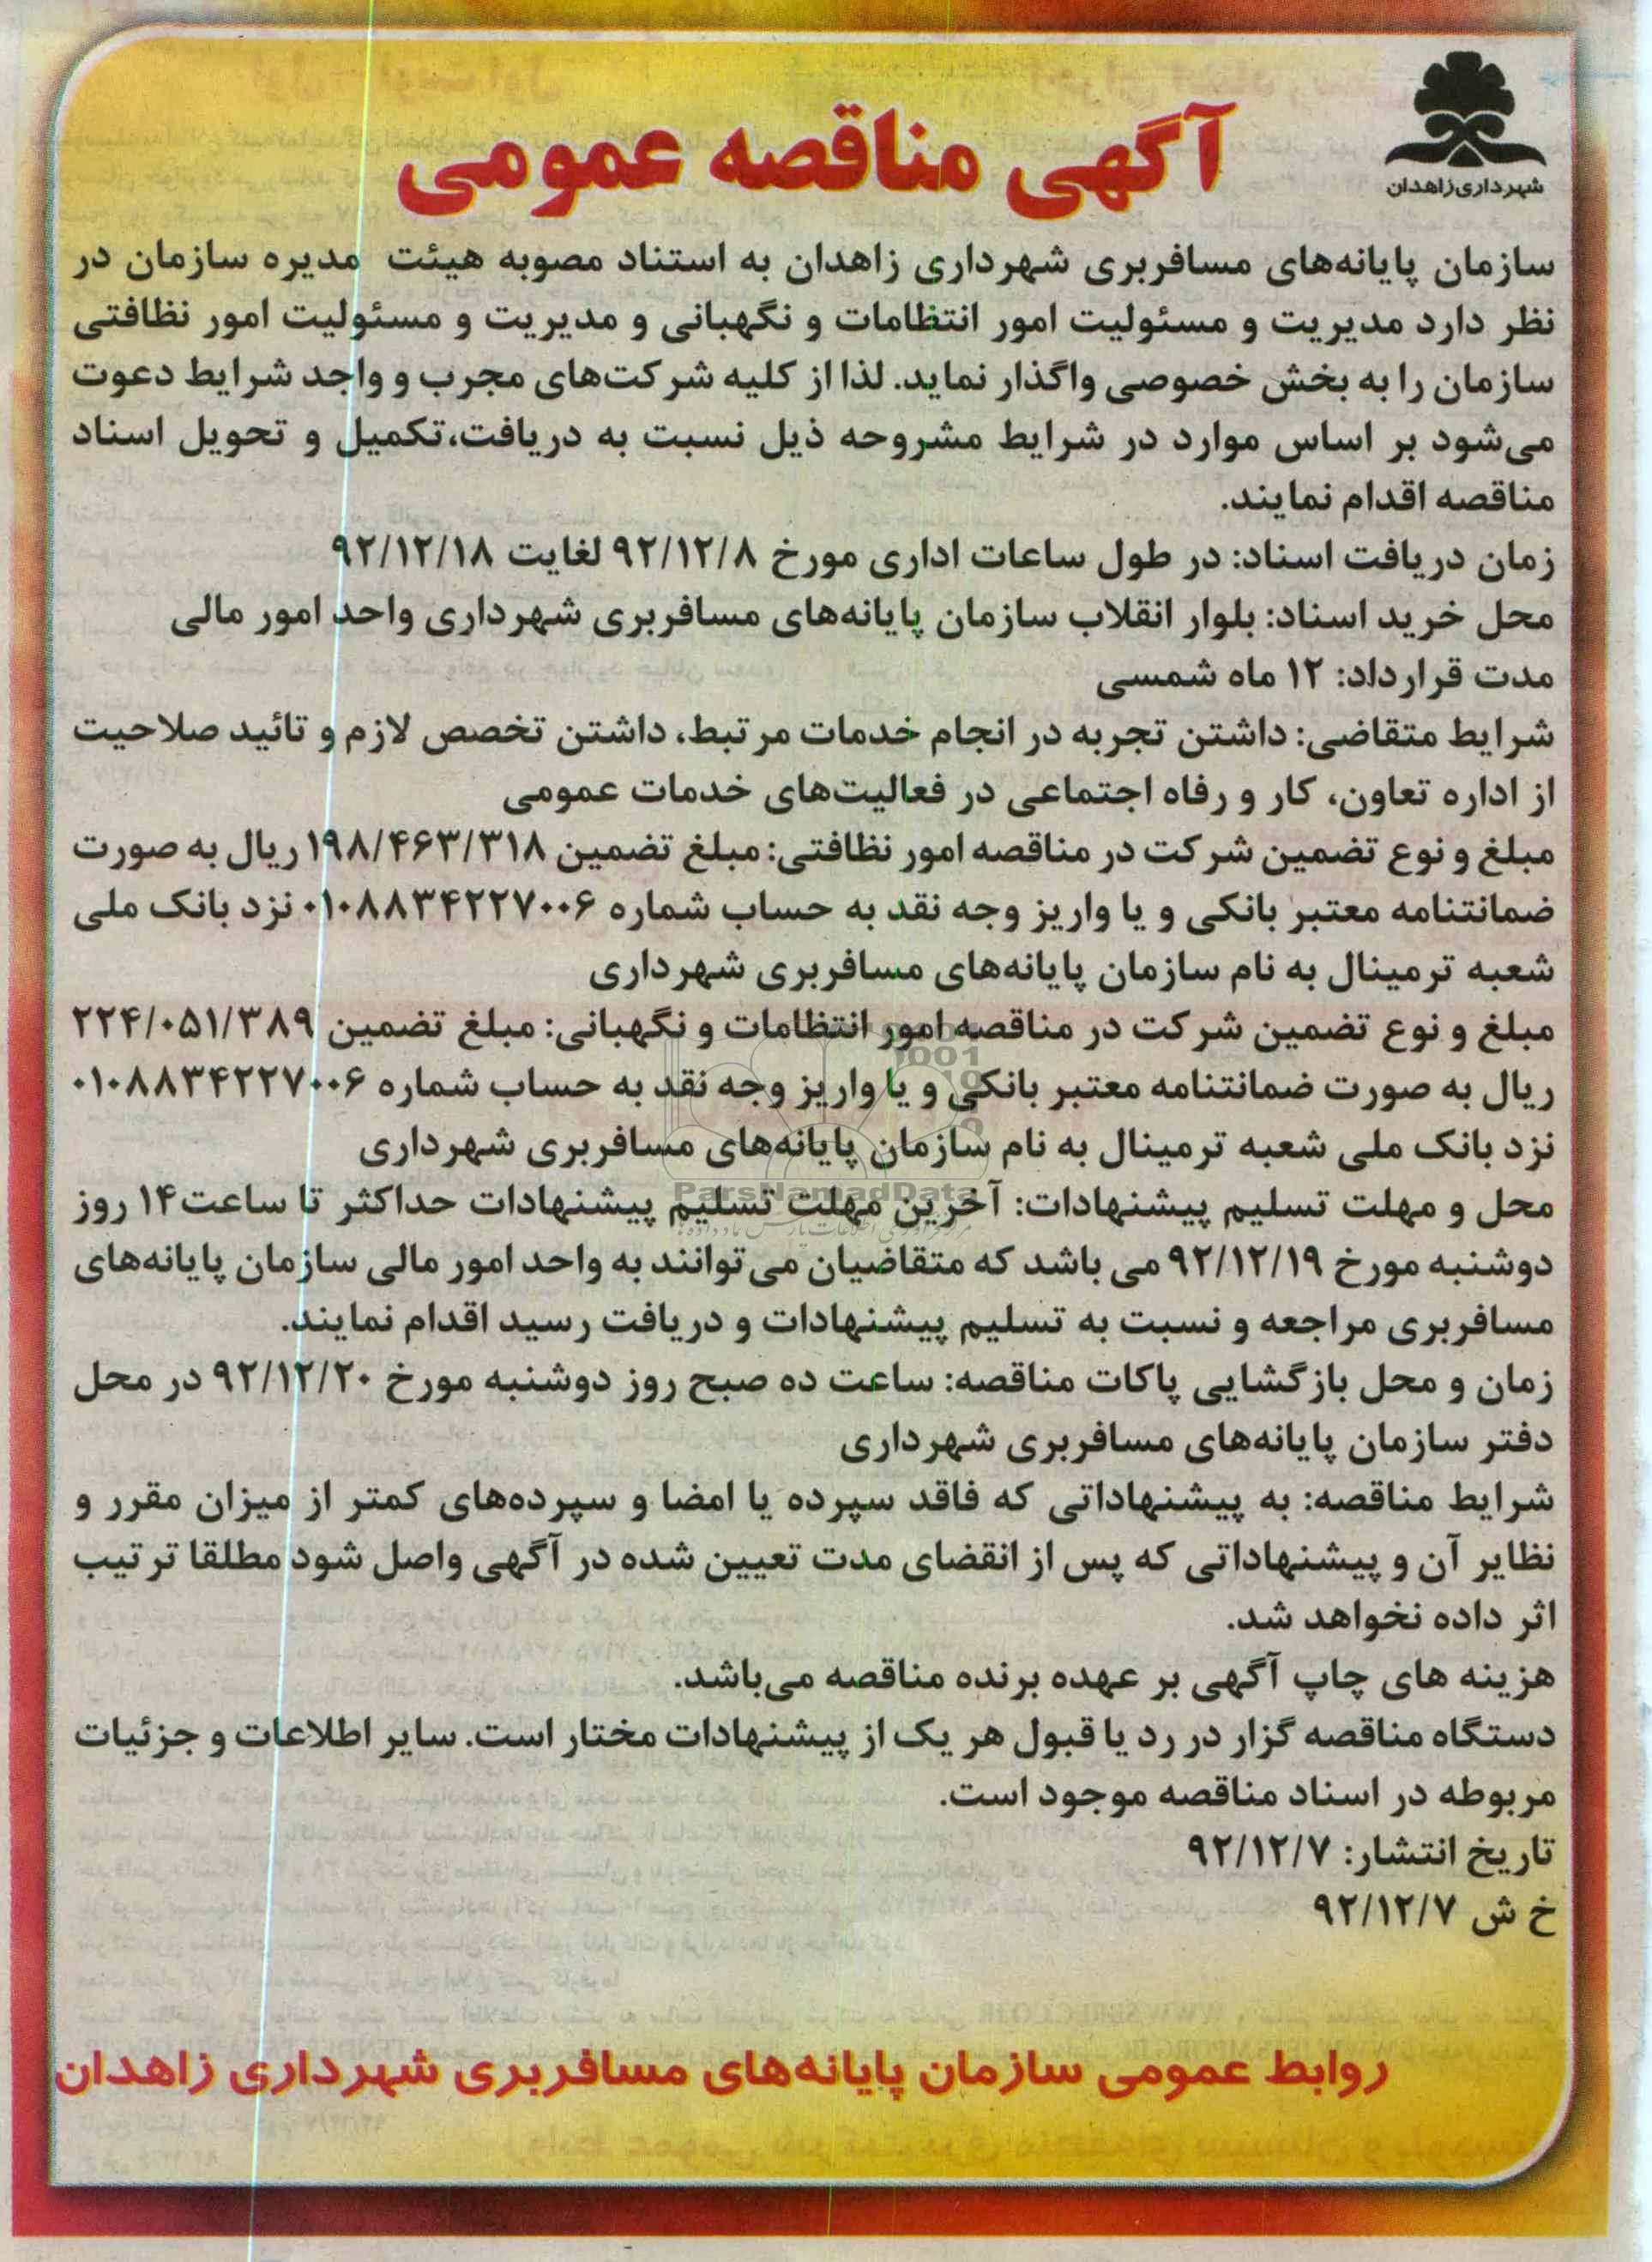 شهرداری زاهدان
آگهی مناقصه عمومی
سازمان پایانه‌های مسافربری شهرداری زاهدان به استناد مصوبه هیئت مدیره سازمان در
نظر دارد مدیریت و مسئولیت امور انتظامات و نگهبانی و مدیریت و مسئولیت امور نظافتی
سازمان را به بخش خصوصی واگذار نماید. لذا از کلیه شرکت‌های مجرب و واجد شرایط دعوت
می‌شود بر اساس موارد در شرایط مشروحه ذیل نسبت به دریافت،تکمیل و تحویل اسناد
مناقصه اقدام نمایند.
زمان دریافت اسناد: در طول ساعات اداری مورخ ۹۲/۱۲/۸ لغایت ۹۲/۱۲/۱۸
محل خرید اسناد: بلوار انقلاب سازمان پایانه‌های مسافربری شهرداری واحد امور مالی
مدت قرارداد: ۱۲ ماه شمسی
شرایط متقاضی: داشتن تجربه در انجام خدمات مرتبط، داشتن تخصص لازم و تائید صلاحیت
از اداره تعاون، کار و رفاه اجتماعی در فعالیت‌های خدمات عمومی
مبلغ و نوع تضمین شرکت در مناقصه امور نظافتی: مبلغ تضمین ۱۹۸/۴۶۳/۳۱۸ ریال به صورت
ضمانتنامه معتبر بانکی و یا واریز وجه نقد به حساب شماره ۰۱۰۸۸۳۴۲۲۷۰۰۶ نزد بانک ملی
شعبه ترمینال به نام سازمان پایانه‌های مسافربری شهرداری
مبلغ و نوع تضمین شرکت در مناقصه امور انتظامات و نگهبانی: مبلغ تضمین ۲۲۴/۰۵۱/۳۸۹
ریال به صورت ضمانتنامه معتبر بانکی و یا واریز وجه نقد به حساب شماره ۰۱۰۸۸۳۴۲۲۷۰۰۶
نزد بانک ملی شعبه ترمینال به نام سازمان پایانه‌های مسافربری شهرداری
ParsNamadData
محل و مهلت تسلیم پیشنهادات: آخرین مهلت تسلیم پیشنهادات حداکثر تا ساعت۱۴ روز
دوشنبه مورخ ۹۲/۱۲/۱۹ می باشد که متقاضیان می توانند به واحد امور مالی سازمان پایانه‌های
مسافربری مراجعه و نسبت به تسلیم پیشنهادات و دریافت رسید اقدام نمایند.
زمان و محل بازگشایی پاکات مناقصه: ساعت ده صبح روز دوشنبه مورخ ۹۲/۱۲/۲۰ در محل
دفتر سازمان پایانه‌های مسافربری شهرداری
شرایط مناقصه: به پیشنهاداتی که فاقد سپرده یا امضا و سپرده‌های کمتر از میزان مقرر و
نظایر آن و پیشنهاداتی که پس از انقضای مدت تعیین شده در آگهی واصل شود مطلقا ترتیب
اثر داده نخواهد شد.
هزینه های چاپ آگهی بر عهده برنده مناقصه می‌باشد.
دستگاه مناقصه گزار در رد یا قبول هر یک از پیشنهادات مختار است. سایر اطلاعات و جزئیات
مربوطه در اسناد مناقصه موجود است.
تاریخ انتشار: ۹۲/۱۲/۷
خ ش ۹۲/۱۲/۷
روابط عمومی سازمان پایانه‌های مسافربری شهرداری زاهدان